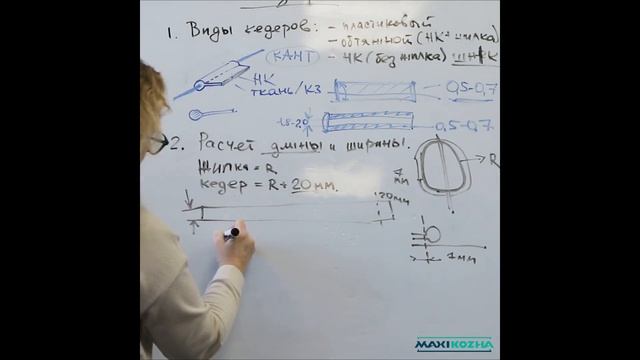 1. Виды кедеров: - пластиковый
- обтяжной (НК + жилка)
(КАНТ) - НК (без жилка) ШНУК
НК
ткань/КЗ
0,5-0,7
18-20
0,5-0,7
2. Расчет длины и ширины.
Жилка = R
кедер = R + 20 мм.
20 мм
7 мм
R
7 мм
MAXIKOZHA